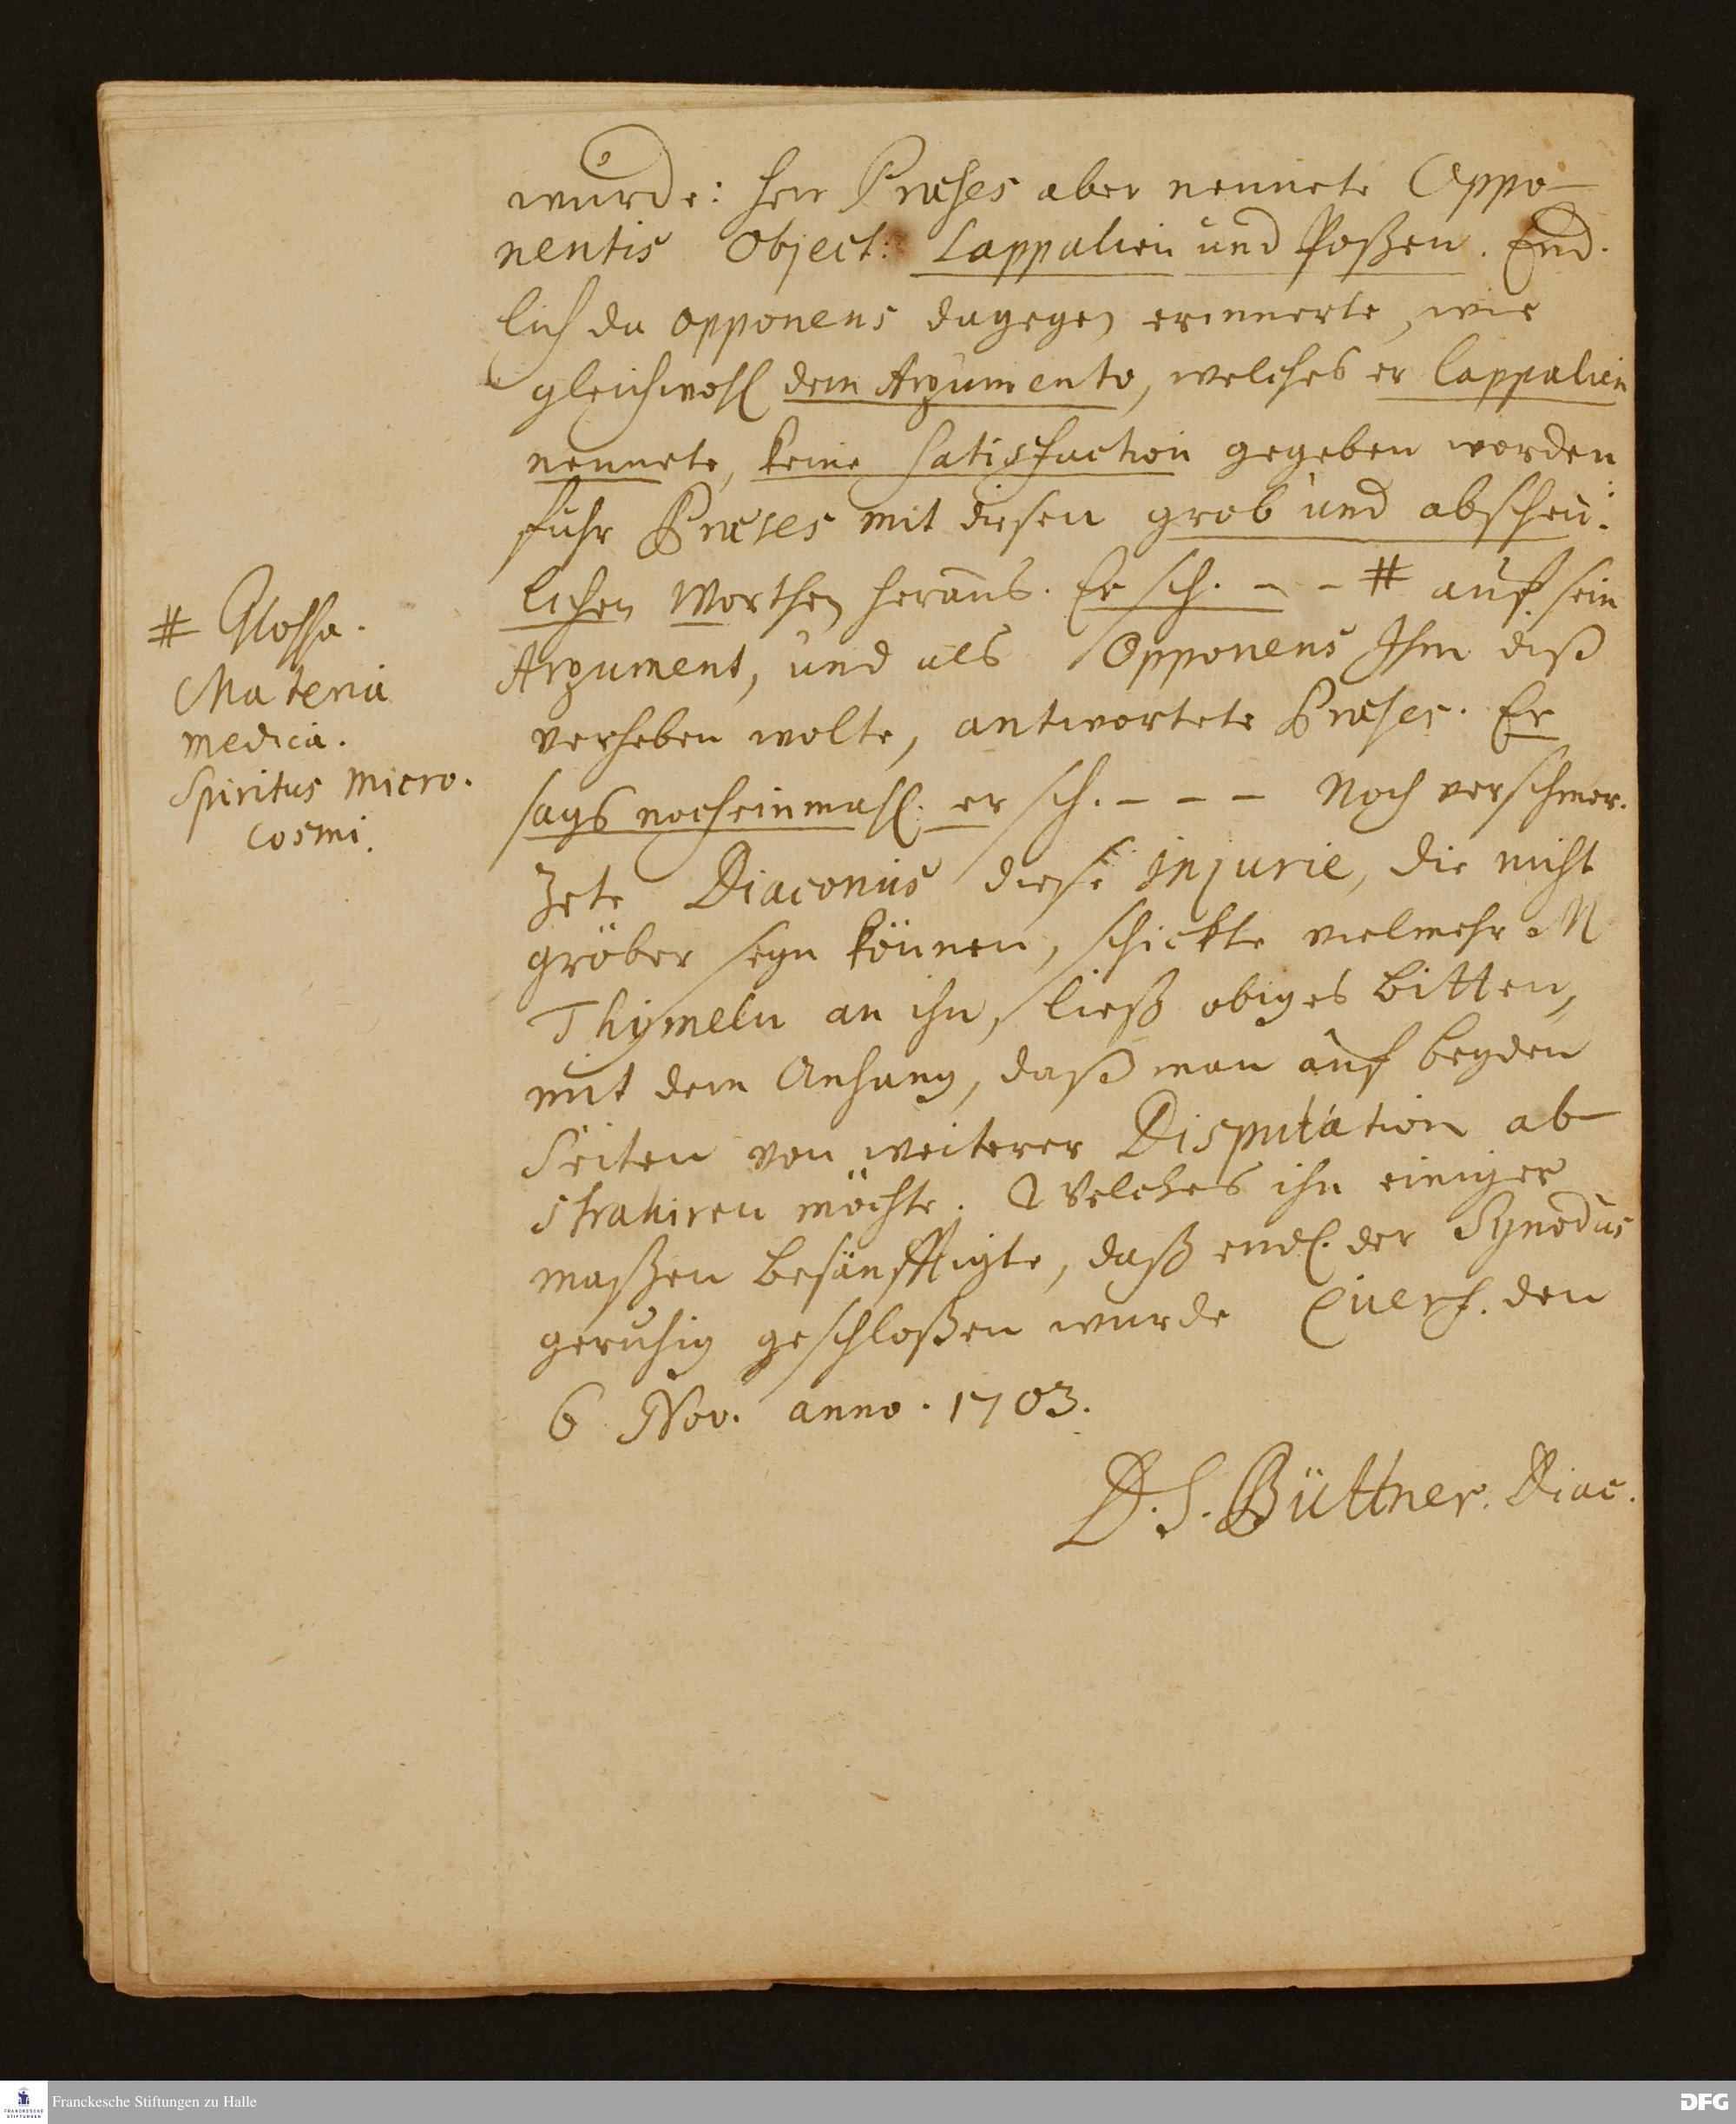 wurde: Herr Præses aber nennete Oppo-
nentis Object: Lappalien und Poßen. End-
lich da Opponens dagegen erinnerte, wie
gleichwohl dem Argumento, welches er Lappalien
nennete, keine Satisfaction gegeben worden
fuhr Præses mit diesen grob und abscheu-
lichen Worthen heraus. Er sch. - - # auf sein
Argument, und als Opponens Ihm diß
verheben wolte, antwortete Præses. Er
sags noch einmahl. er sch. - - - Noch verschmer-
zete Diaconus diese injurie, die nicht
gröber seyn können, schickte vielmehr M
Thymeln an ihn, ließ obiges bitten,
mit dem Anhang, daß man auf beyden
Seiten von weiterer Disputation ab-
strahiren möchte. Welches ihn einiger
maßen besänfftigte, daß endl. der Synodus
geruhig geschloßen wurde Querf. den
6 Nov. anno. 1703.
D. S. Büttner. Diac.
# Glossa.
Materia
medica.
Spiritus micro-
cosmi.
Franckesche Stiftungen zu Halle
FRANCKESCHE
STIFTUNGEN
DFG